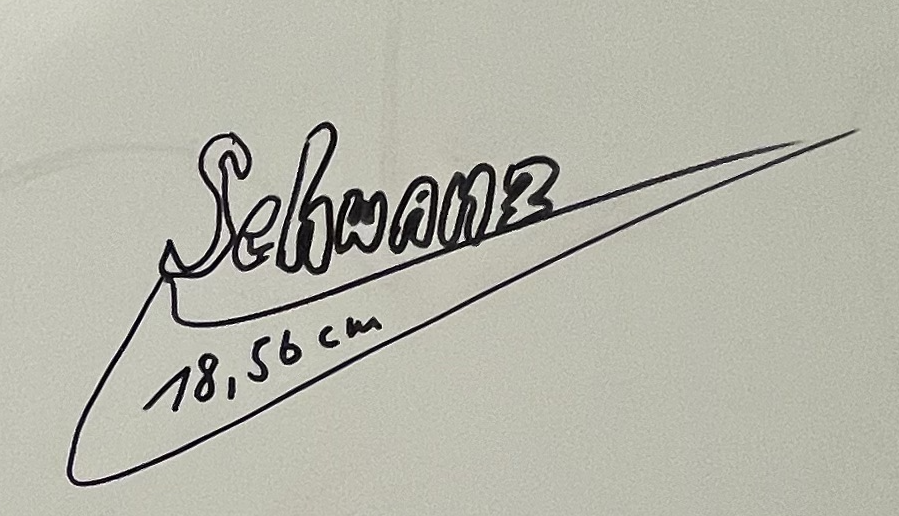 Schwanz
18,56 cm